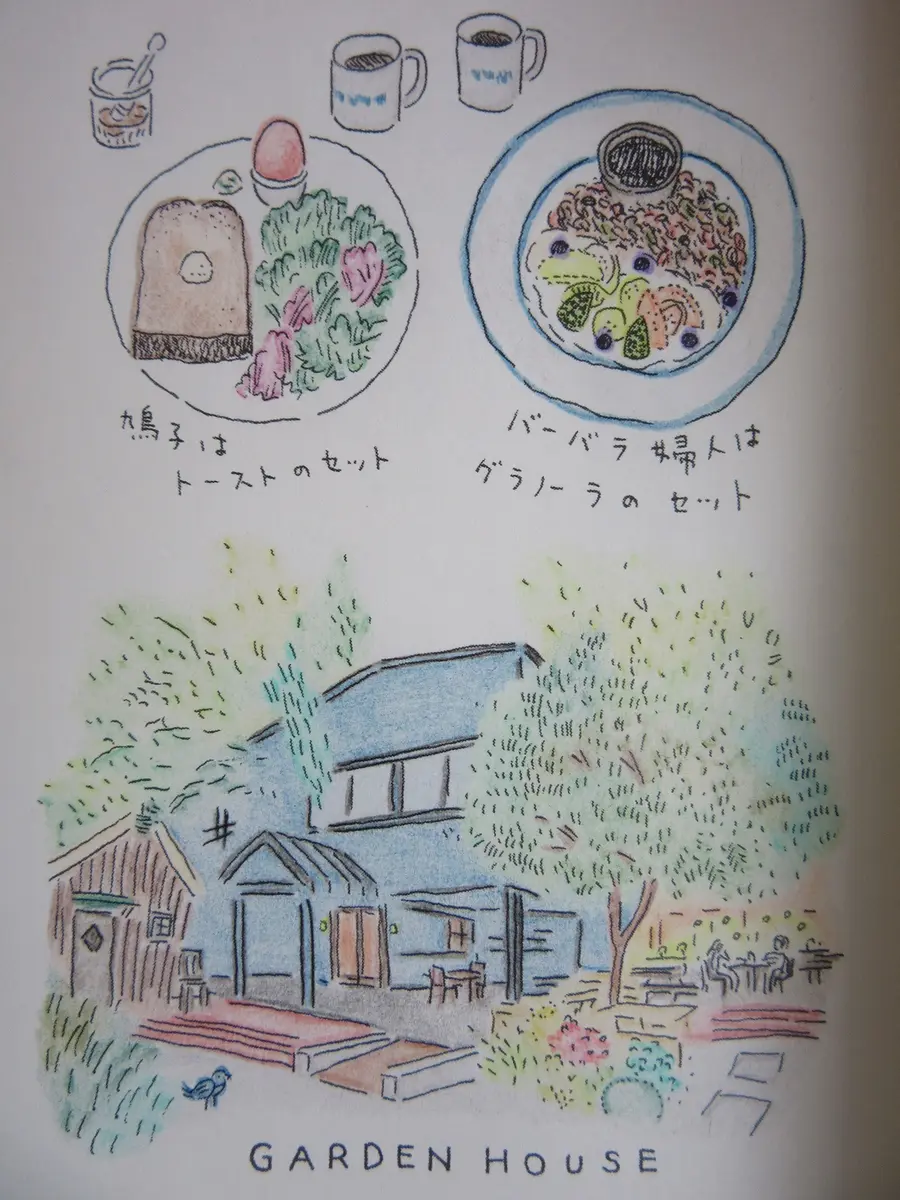 鳩子は
トーストのセット
バーバラ婦人は
グラノーラのセット
GARDEN HOUSE